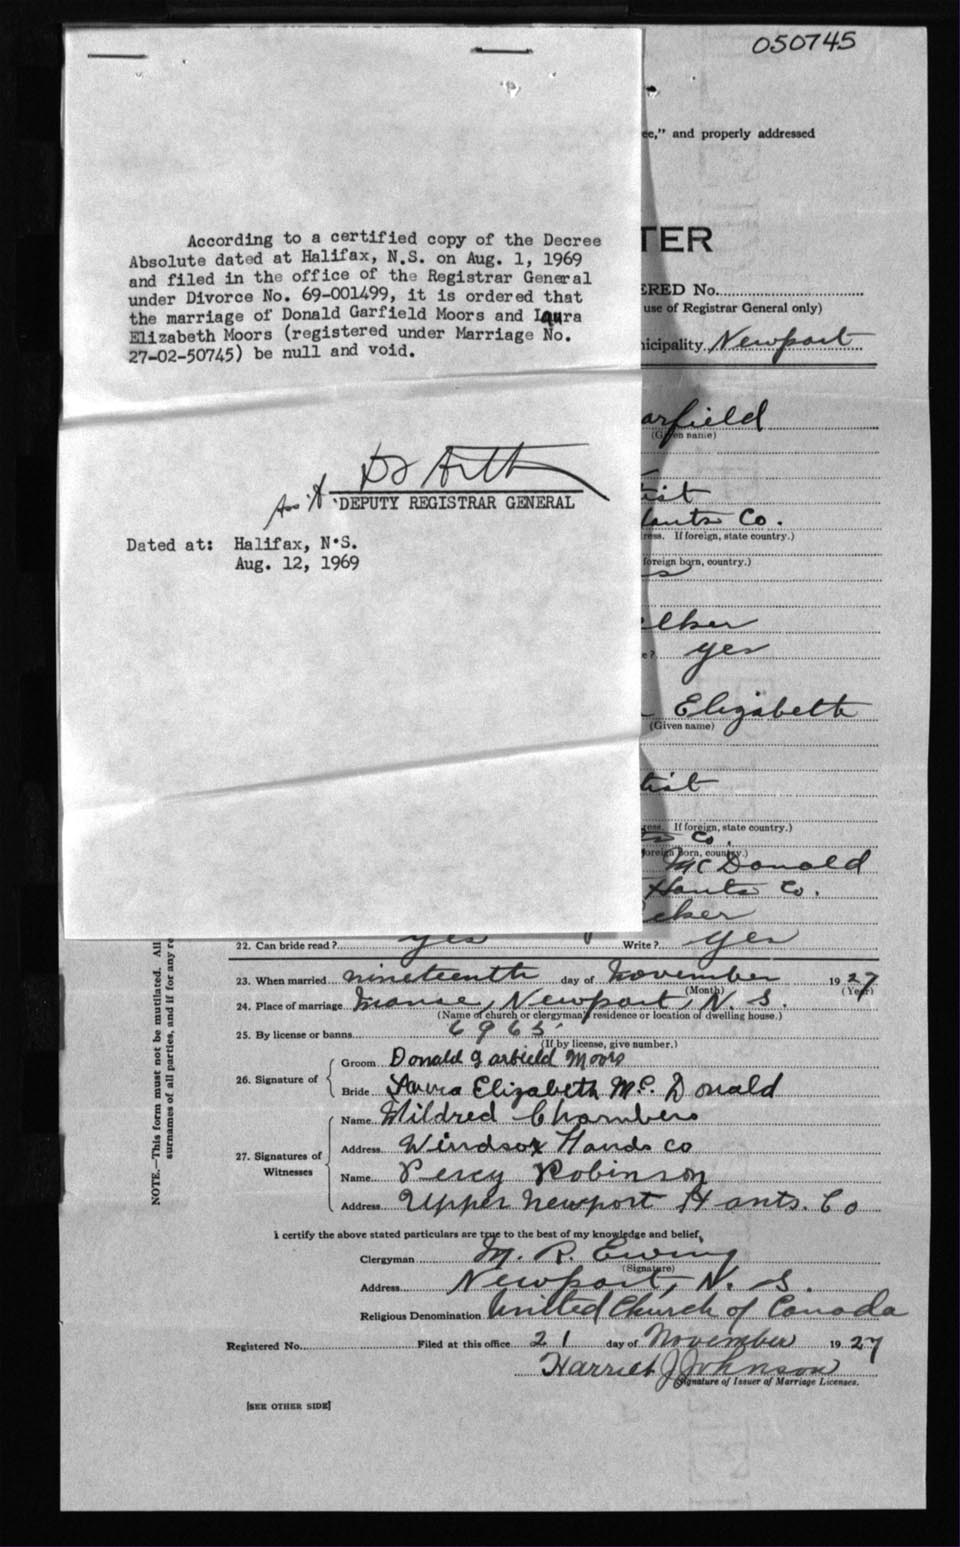 050745
ee," and properly addressed
TER
ERED No.
use of Registrar General only)
icipality. Newport
According to a certified copy of the Decree
Absolute dated at Halifax, N.S. on Aug. 1, 1969
and filed in the office of the Registrar General
under Divorce No. 69-001499, it is ordered that
the marriage of Donald Garfield Moors and Laura
Elizabeth Moors (registered under Marriage No.
27-02-50745) be null and void.
DEPUTY REGISTRAR GENERAL
Dated at: Halifax, N.S.
Aug. 12, 1969
arfield
(Given name)
tist
Hants Co.
ress. If foreign, state country.)
foreign born, country.)
elker
e? yes
Elizabeth
(Given name)
tist
ress. If foreign, state country.)
Co.
foreign born, country.)
McDonald
Hants Co.
cker
22. Can bride read? yes Write? yes
23. When married nineteenth day of November 1927
(Month) (Year)
24. Place of marriage Manse, Newport, N. S.
(Name of church or clergyman's residence or location of dwelling house.)
25. By license or banns 6965
(If by license, give number.)
26. Signature of
Groom Donald Garfield Moors
Bride Laura Elizabeth McDonald
27. Signatures of Witnesses
Name Mildred Chambers
Address Windsor Hands co
Name Percy Robinson
Address Upper Newport Hants. Co
I certify the above stated particulars are true to the best of my knowledge and belief,
Clergyman M. R. Ewing
(Signature)
Address Newport, N. S.
Religious Denomination United Church of Canada
Registered No. Filed at this office 21 day of November 1927
Harriet J Johnson
Signature of Issuer of Marriage Licenses.
[SEE OTHER SIDE]
NOTE.—This form must not be mutilated. All
surnames of all parties, and if for any re